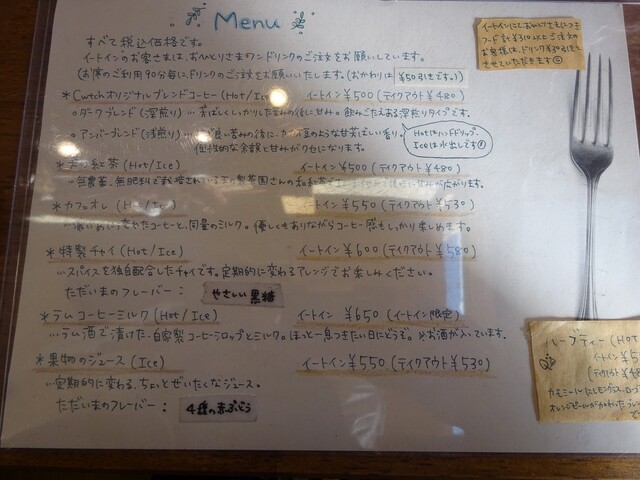 Menu
すべて税込価格です。
イートインのお客さまは、おひとりさまワンドリンクのご注文をお願いしています。
(お席のご利用90分毎に、ドリンクのご注文をお願いいたします。(おかわりは ¥50引きです。))
イートインにておひとりさまにつき
フード計¥310以上ご注文の
お客様は、ドリンク¥30引きと
させていただきます
*Cwtchオリジナルブレンドコーヒー(Hot/Ice) イートイン¥500(テイクアウト¥480)
・ダークブレンド(深煎り)…香ばしくしっかりした苦みの後に甘み。飲みごたえある深煎りタイプです。
・アンバーブレンド(浅煎り)…良い苦みの後に、カのような甘茶ばしい香り。
個性的な余韻と甘みがクセになります。
Hotはハンドドリップ、
Iceは水出しです
紅茶(Hot/Ice) イートイン¥500(テイクアウト¥480)
…無農薬、無肥料で栽培されている製茶園さんの和紅茶 甘みが広がります。
*カフェオレ(Hot/Ice) イートイン¥550(テイクアウト¥530)
コーヒーと、同量のミルク。優しくありながらコーヒー感もしっかり楽しめます。
*特製チャイ(Hot/Ice) イートイン¥600(テイクアウト¥580)
…スパイスを独自配合したチャイです。定期的に変わるアレンジでお楽しみください。
ただいまのフレーバー: やさしい黒糖
*ラムコーヒーミルク(Hot/Ice) イートイン ¥650(イートイン限定)
…ラム酒で漬けた、自家製コーヒーシロップとミルク。ほっと一息つきたい日にどうぞ。※お酒が入っています。
*果物のジュース(Ice) イートイン¥550(テイクアウト¥530)
…定期的に変わる、ちょいとぜいたくなジュース。
ただいまのフレーバー: 4種の赤ぶどう
ハーブティー(HOT
イートイン¥5
(テイクアウト¥48
カモミールにレモングラス、ロー
オレンジピールが加わったブレン